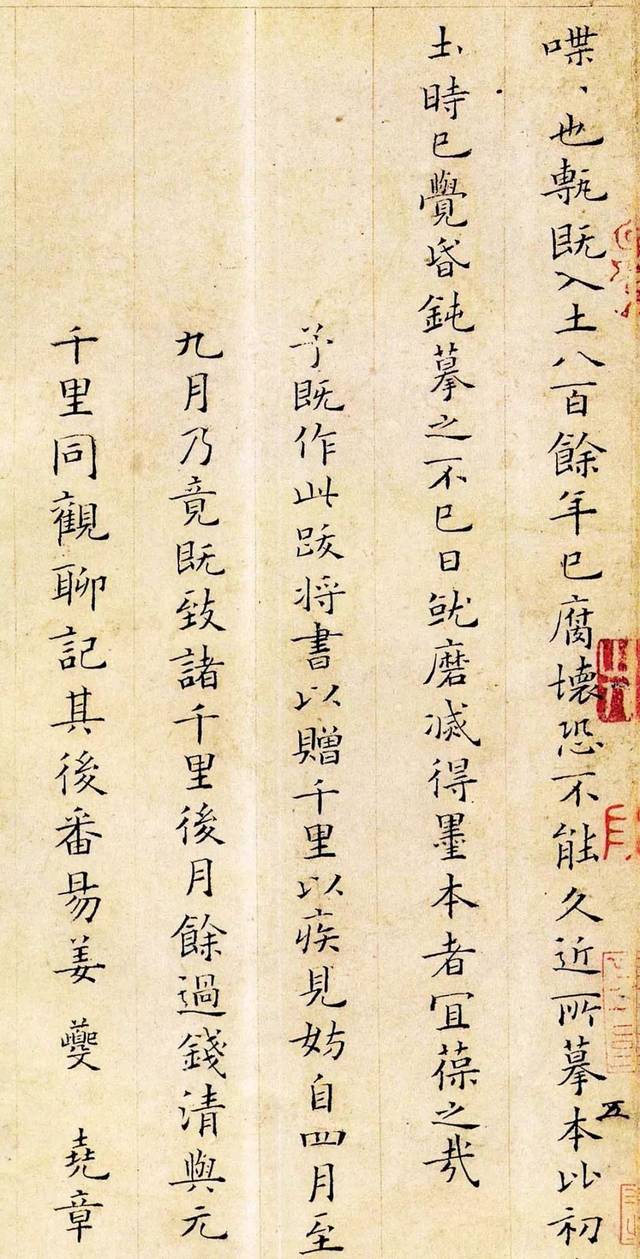 喋丶也甎既入土八百餘年已腐壞恐不能久近所摹本比初
土時已覺昏鈍摹之不已日就磨滅得墨本者宜葆之哉
予既作此跋將書以贈千里以疾見妨自四月至
九月乃竟既致諸千里後月餘過錢清與元
千里同觀聊記其後番昜姜夔 堯章
五